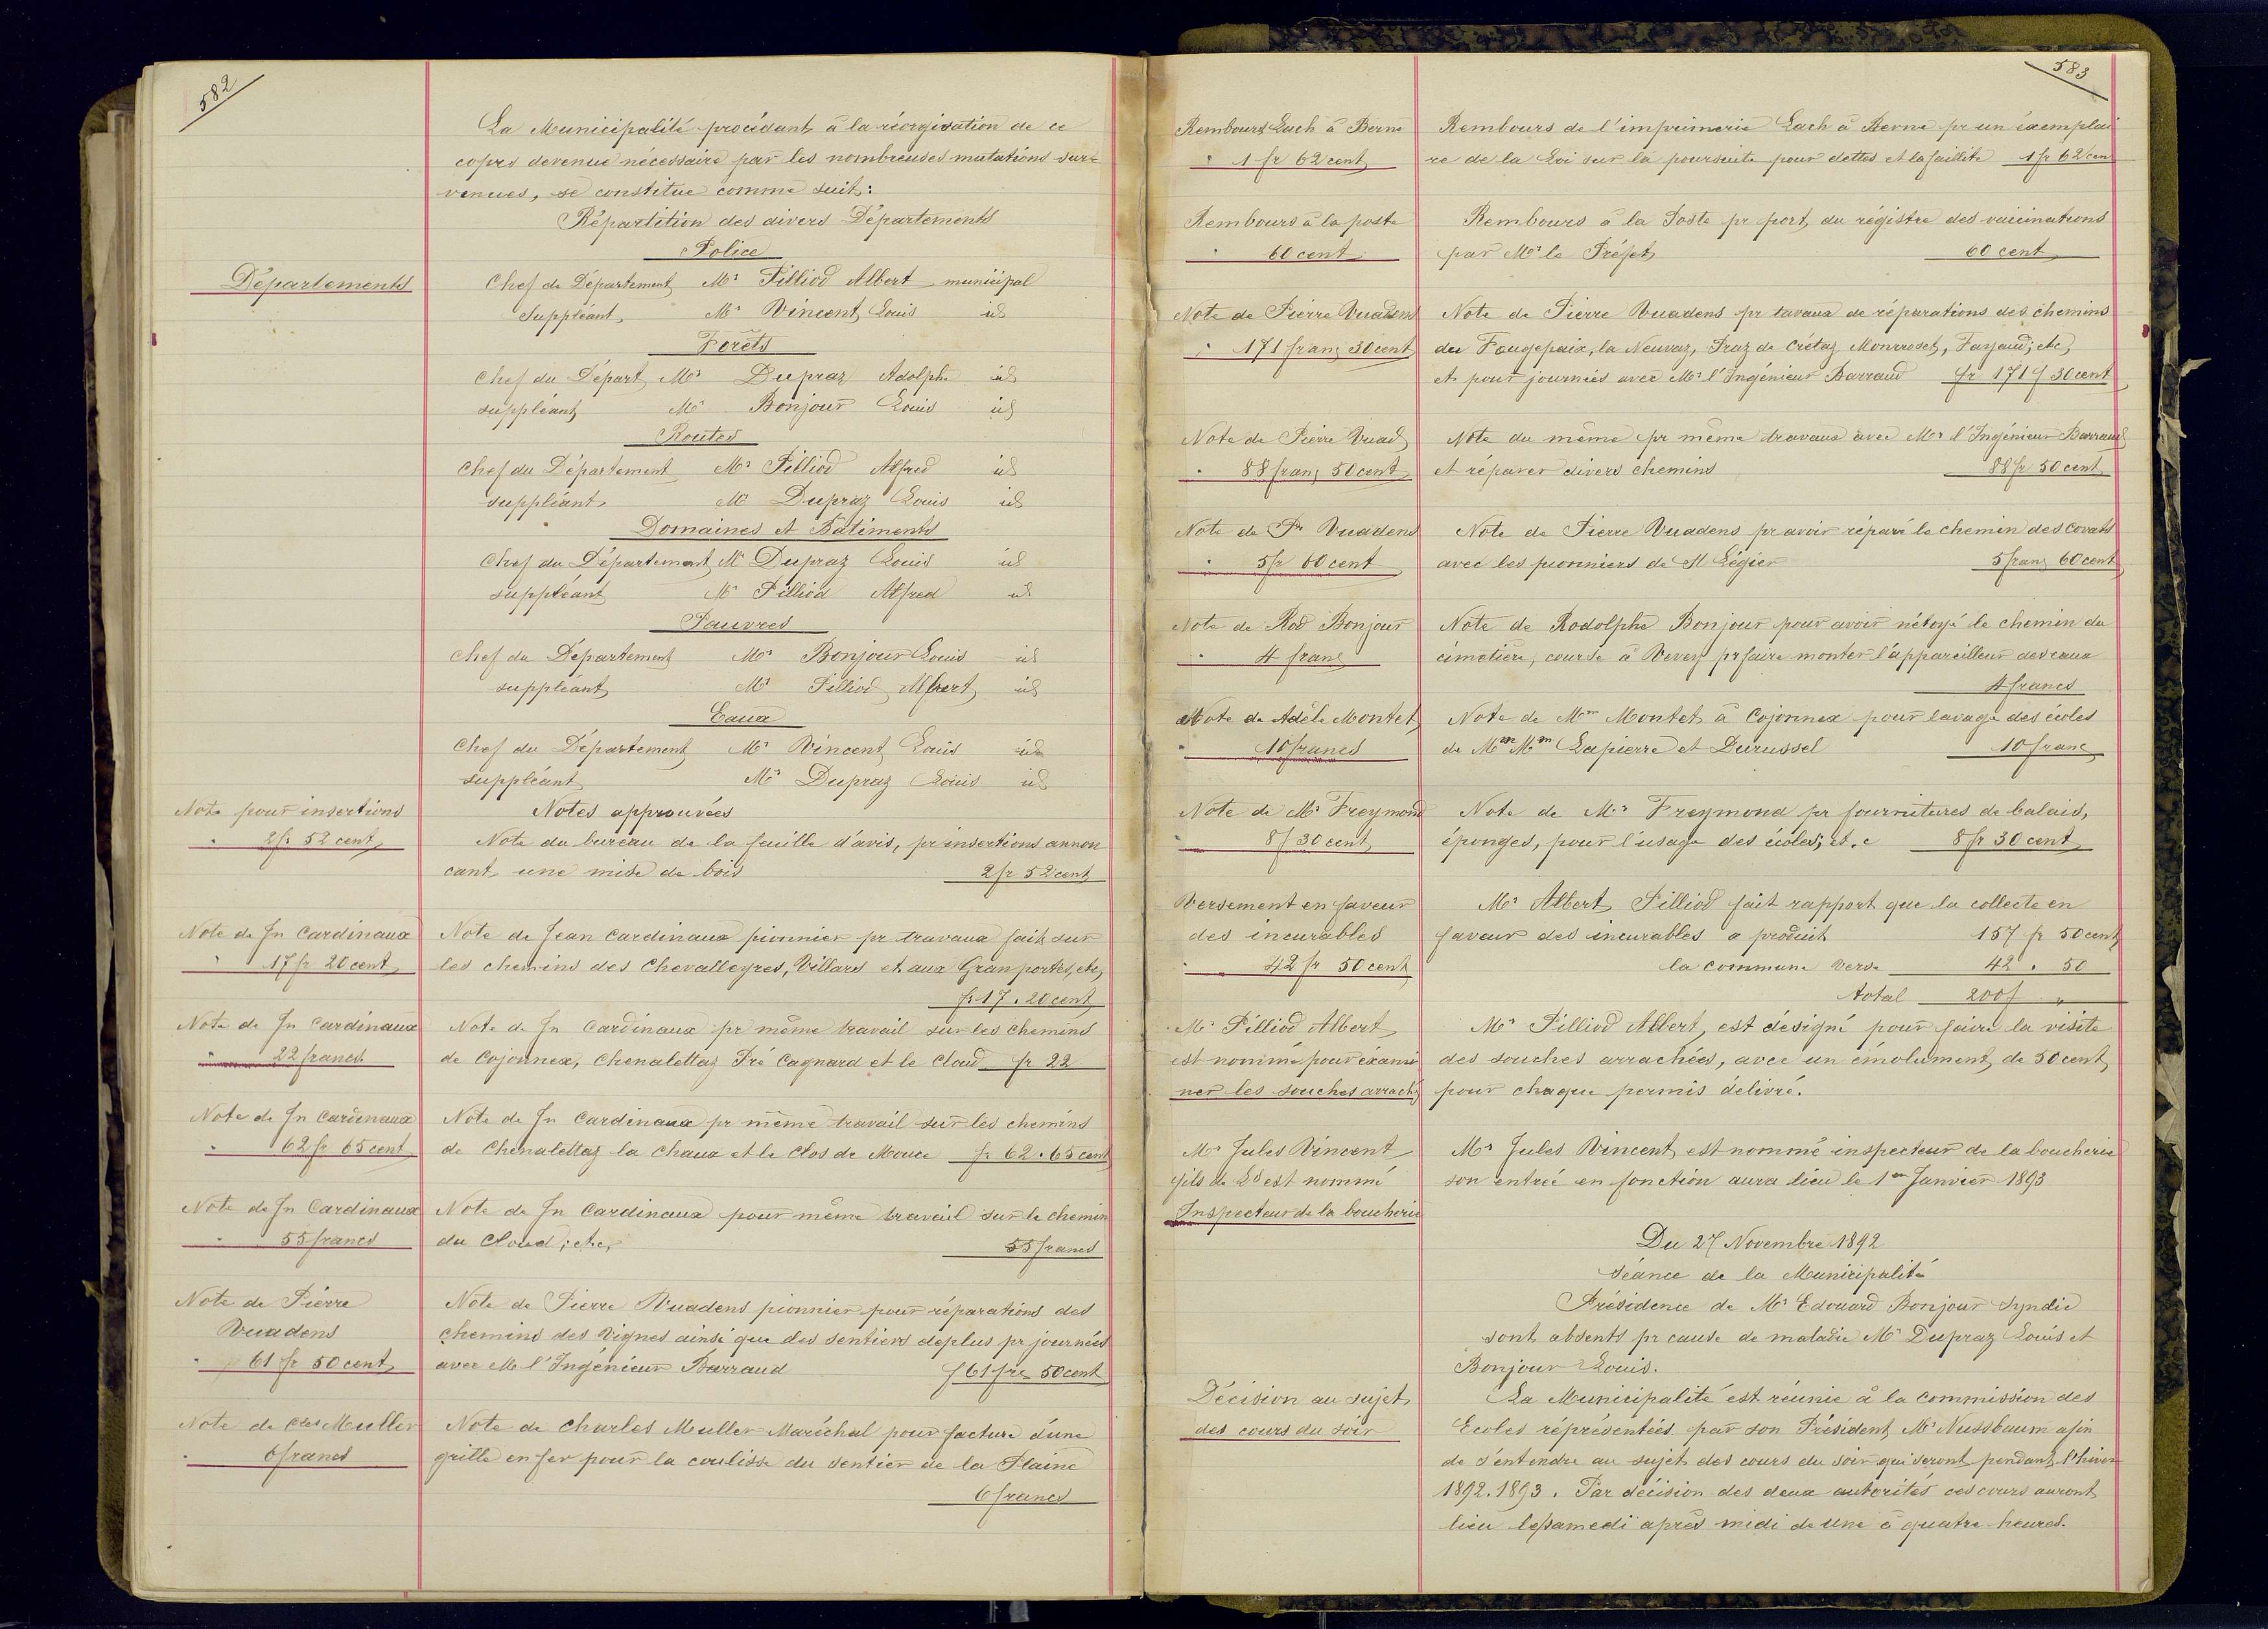 582
La Municipalité procédant à la réorgisation de ce
copres devenue nécessaire par les nombreuses mutations sur=
venues, se constitue comme suit:
Répartition des divers Départements
Police
Départements
Chef de Département Mr Pilliod Albert municipal
Suppléant Mr Vincent Louis id
Forêts
Chef du Départ Mr Dupraz Adolphe id
suppléant Mr Bonjour Louis id
Routes
Chef du Département Mr Pilliod Alfred id
suppléant Mr Dupraz Louis id
Domaines et Bâtiments
Chef du Département Mr Dupraz Louis id
suppléant Mr Pilliod Alfred id
Pauvres
Chef du Département Mr Bonjour Louis id
suppléant Mr Pilliod id
Eaux
Chef du Département Mr Vincent Louis id
suppléant Mr Dupraz Louis id
Note pour insertions
" 2 fr 52 cent
Notes approuvées
Note du bureau de la feuille d'avis, pr insertions annon
cant une mise de bois 2 fr 52 cent
Note de Jn Cardinaux
" 17 fr 20 cent
Note de Jean Cardinaux pionnier pr travaux fait sur
les chemins des Chevalleyres, Villars et aux Gran portes, etc,
fr 17. 20 cent
Note de Jn Cardinaux
" 22 francs
Note de Jn Cardinaux pr même travail sur les chemins
de Cojonnex, Chenalettaz Pré Cagnard et le Cloud fr 22
Note de Jn Cardinaux
" 62 fr 65 cent
Note de Jn Cardinaux pr même travail sur les chemins
de Chenalettaz la Chaux et le Clos de Mouce fr 62. 65 cent
Note de Jn Cardinaux
" 55 francs
Note de Jn Cardinaux pour même travail sur le chemin
du Cloud, etc, 55 francs
Note de Pierre
Vuadens
" 61 fr 50 cent
Note de Pierre Vuadens pionnier pour réparations des
chemins des Vignes ainsi que des sentiers deplus pr journées
avec M l'Ingénieur Barraud 61 frs 50 cent
Note de Chs Muller
" 6 francs
Note de Charles Muller Maréchal pour facture d'une
grille en fer pour la coulisse du sentier de la Plaine
6 francs
583
Rembours Lach à Berne
" 1 fr 62 cent
Rembours de l'imprimerie Lach à Berne pr un éxemplai
re de la Loi sur la poursuite pour dettes et la faillite 1 fr 62 cen
Rembours à la poste
" 60 cent
Rembours à la Poste pr port du régistre des vaicinations
par Mr le Préfet 60 cent
Note de Pierre Vuadens
" 171 franc 30 cent
Note de Pierre Vuadens pr tavaux de réparations des chemins
du Fougepaix, la Neuvaz, Praz de Crétaz etc,
et pour journées avec Mr l'Ingénieur Barraud fr 171 f 30 cent
Note de Pierre Vuad
" 88 franc 50 cent
Note du même pr même travaux avec Mr l'Ingénieur Barraud
et réparer divers chemins 88 fr 50 cent
Note de Pr Vuadens
" 5 fr 60 cent
Note de Pierre Vuadens pr avoir réparé le chemin des Covats
avec les pionniers de St Légier 5 franc 60 cent
Note de Rod Bonjour
" 4 franc
Note de Rodolphe Bonjour pour avoir nétoyé le chemin du
cimetière, course à Vevey pr faire monter l'appareilleur des eaux
4 francs
Note de Adèle Montet
" 10 francs
Note de Mm Montet à Cojonnex pour lavage des écoles
de Mm Mm Lapierre et Durussel 10 franc
Note de Mr Freymond
" 8 f 30 cent
Note de Mr Freymond pr fournitures de balais,
éponges, pour l'usage des écoles, et. c 8 fr 30 cent
Versement en faveur
des incurables
" 42 fr 50 cent
Mr Albert Pilliod fait rapport que la collecte en
faveur des incurables a produit 157 fr 50 cent
la commune verse 42 . 50
total 200 f "
Mr Pilliod Albert
est nommé pour éxami
ner les souches arrachés
Mr Pilliod Albert, est désigné pour faire la visite
des souches arrachées, avec un émolument de 50 cent
pour chaque permis délivré.
Mr Jules Vincent
fils de Ls est nommé
Inspecteur de la boucherie
Mr Jules Vincent est nommé inspecteur de la boucherie
son entrée en fonction aura lieu le 1er Janvier 1893
Du 27 Novembre 1892
Séance de la Municipalité
Présidence de Mr Edouard Bonjour Syndic
sont absents pr cause de maladie Mr Dupraz Louis et
Bonjour Louis.
Décision au sujet
des cours du soir
La Municipalité est réunie à la Commission des
Ecoles réprésentées par son Président Mr Nussbaum afin
de s'entendre au sujet des cours du soir qui seront pendant l'hiver
1892.1893. Par décision des deux autorités ces cours auront
lieu le samedi après midi de une à quatre heures.